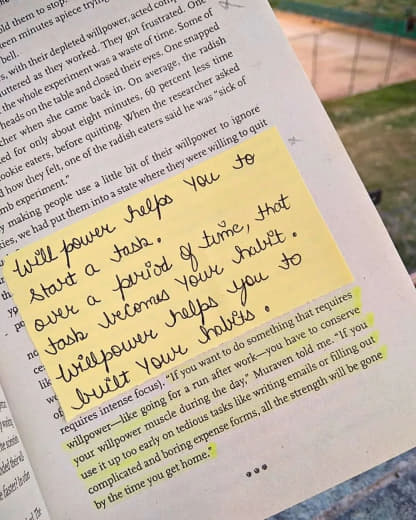 old them to stop.
een minutes apiece tryin
bell.
s, with their depleted willpower, acted com
uttered as they worked. They got frustrated. One
the whole experiment was a waste of time. Some of
heads on the table and closed their eyes. One snapped
cher when she came back in. On average, the radish
ed for only about eight minutes, 60 percent less time
ookie eaters, before quitting. When the researcher asked
d how they felt, one of the radish eaters said he was "sick of
mb experiment."
y making people use a little bit of their willpower to ignore
ies, we had put them into a state where they were willing to quit
Will power helps you to
start a task.
over a period of time, that
task becomes your habit.
Willpower helps you to
built your habits.
requires intense focus). "If you want to do something that requires
willpower—like going for a run after work—you have to conserve
your willpower muscle during the day," Muraven told me. "If you
use it up too early on tedious tasks like writing emails or filling out
complicated and boring expense forms, all the strength will be gone
by the time you get home."